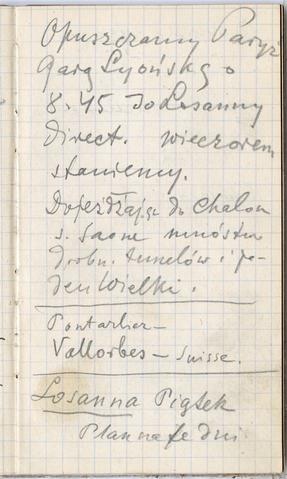 Opuszczamy Paryż
Garą Lyońską o
8.45 do Losanny
direct. wieczorem
staniemy.
Dojeżdżając do Chalon
s. Saone mnóstwo
drobn. tunelów i je-
den wielki.
Pontarlier –
Vallorbes – Suisse.
Losanna Piątek
Plan na te dni